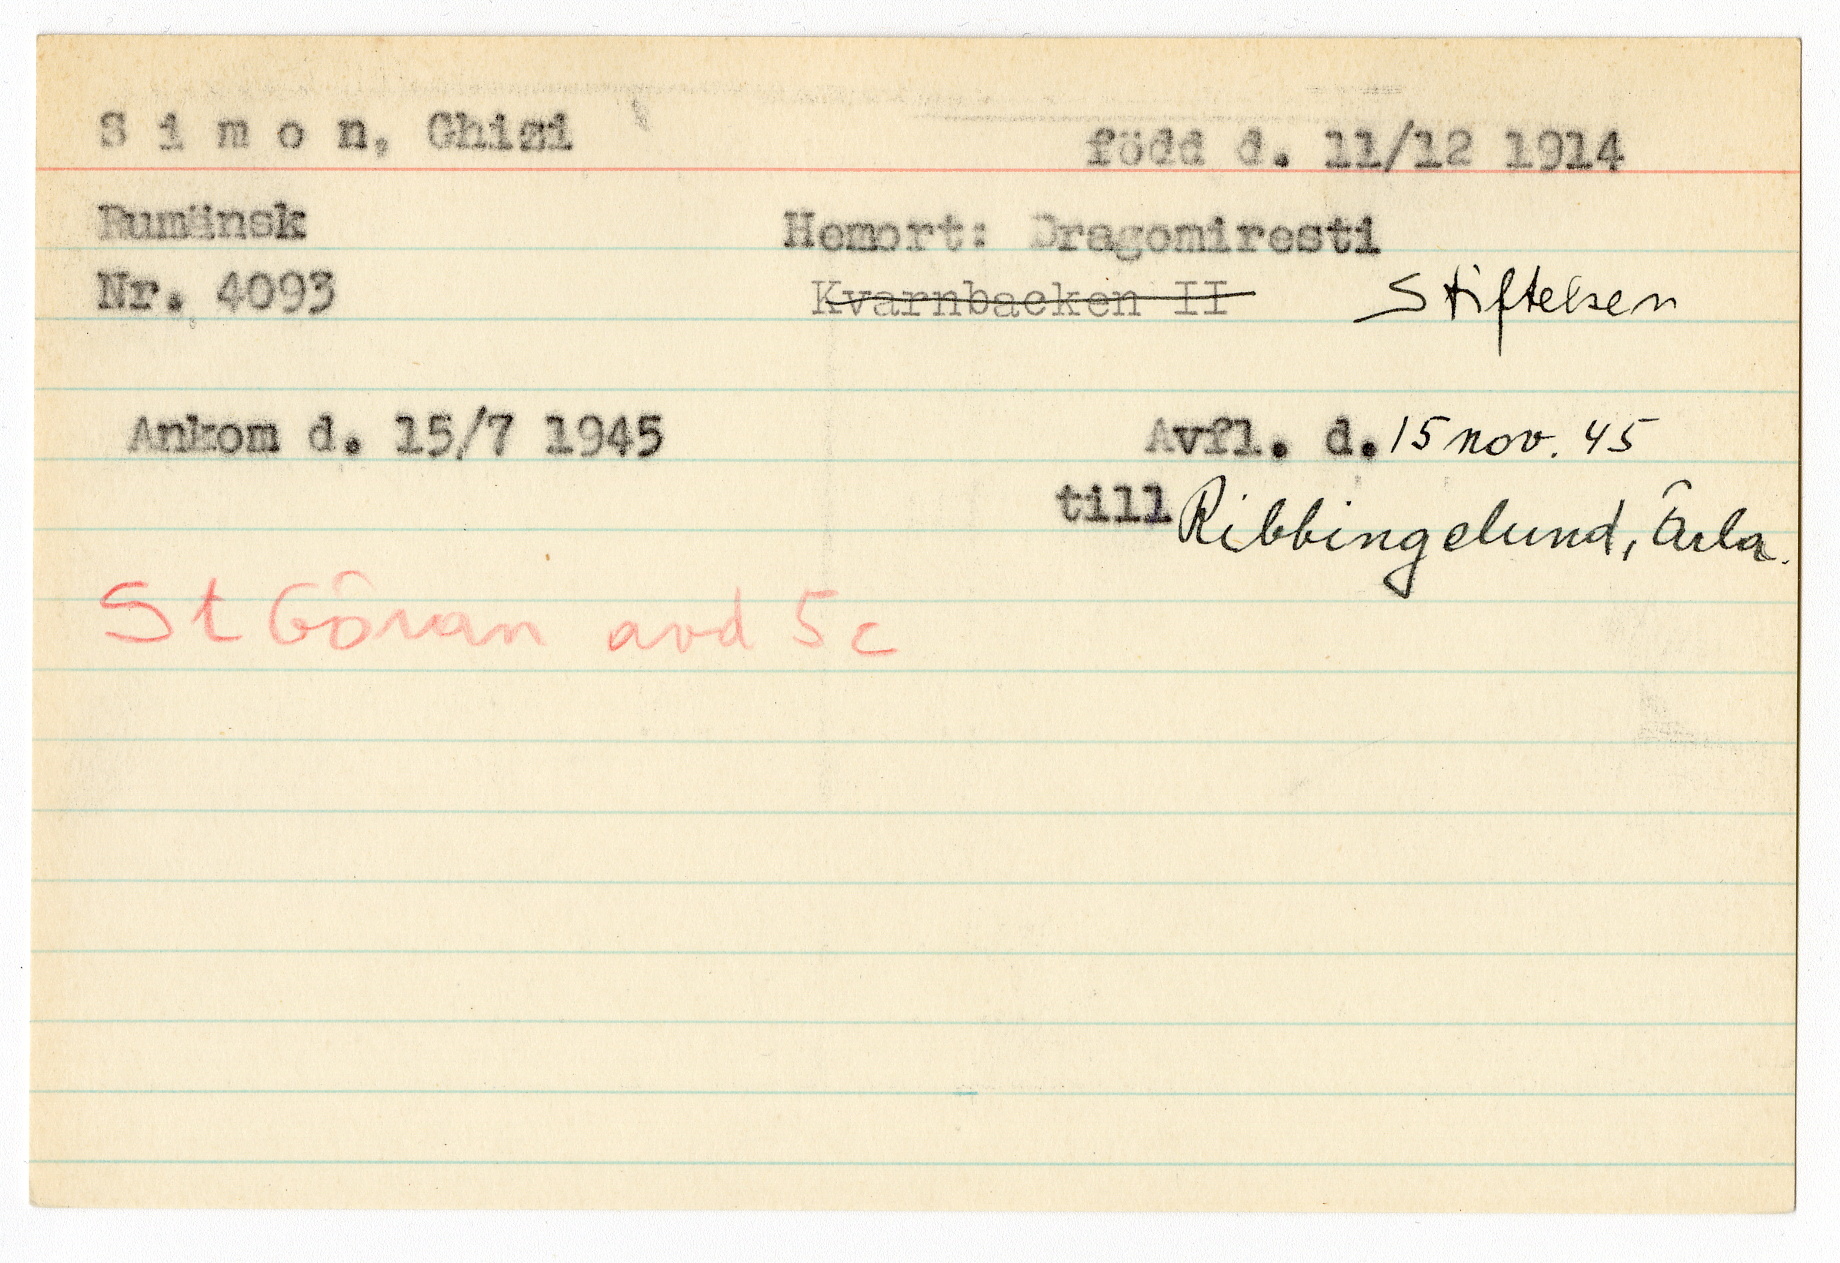 S i m o n, Ghizi född d. 11/12 1914
Rumänsk Hemort: Dragomiresti
Nr. 4093 Kvarnbacken II Stiftelsen
Ankom d. 15/7 1945 Avfl. d. 15 nov. 45
till Ribbingelund, Ärla.
St Göran avd 5c